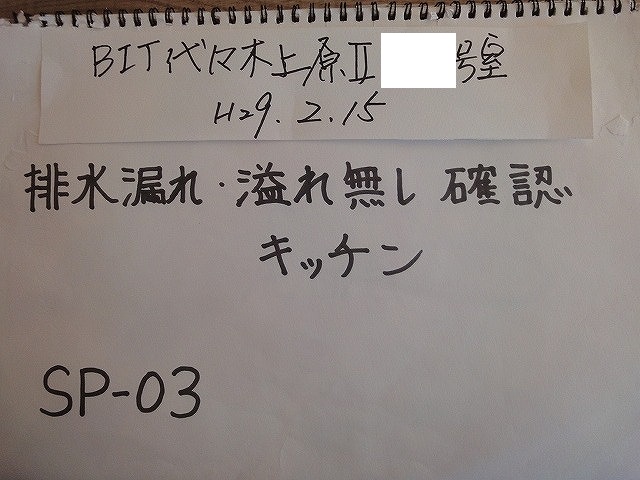 BIT代々木上原II 号室
H29.2.15
排水漏れ・溢れ無し 確認
キッチン
SP-03